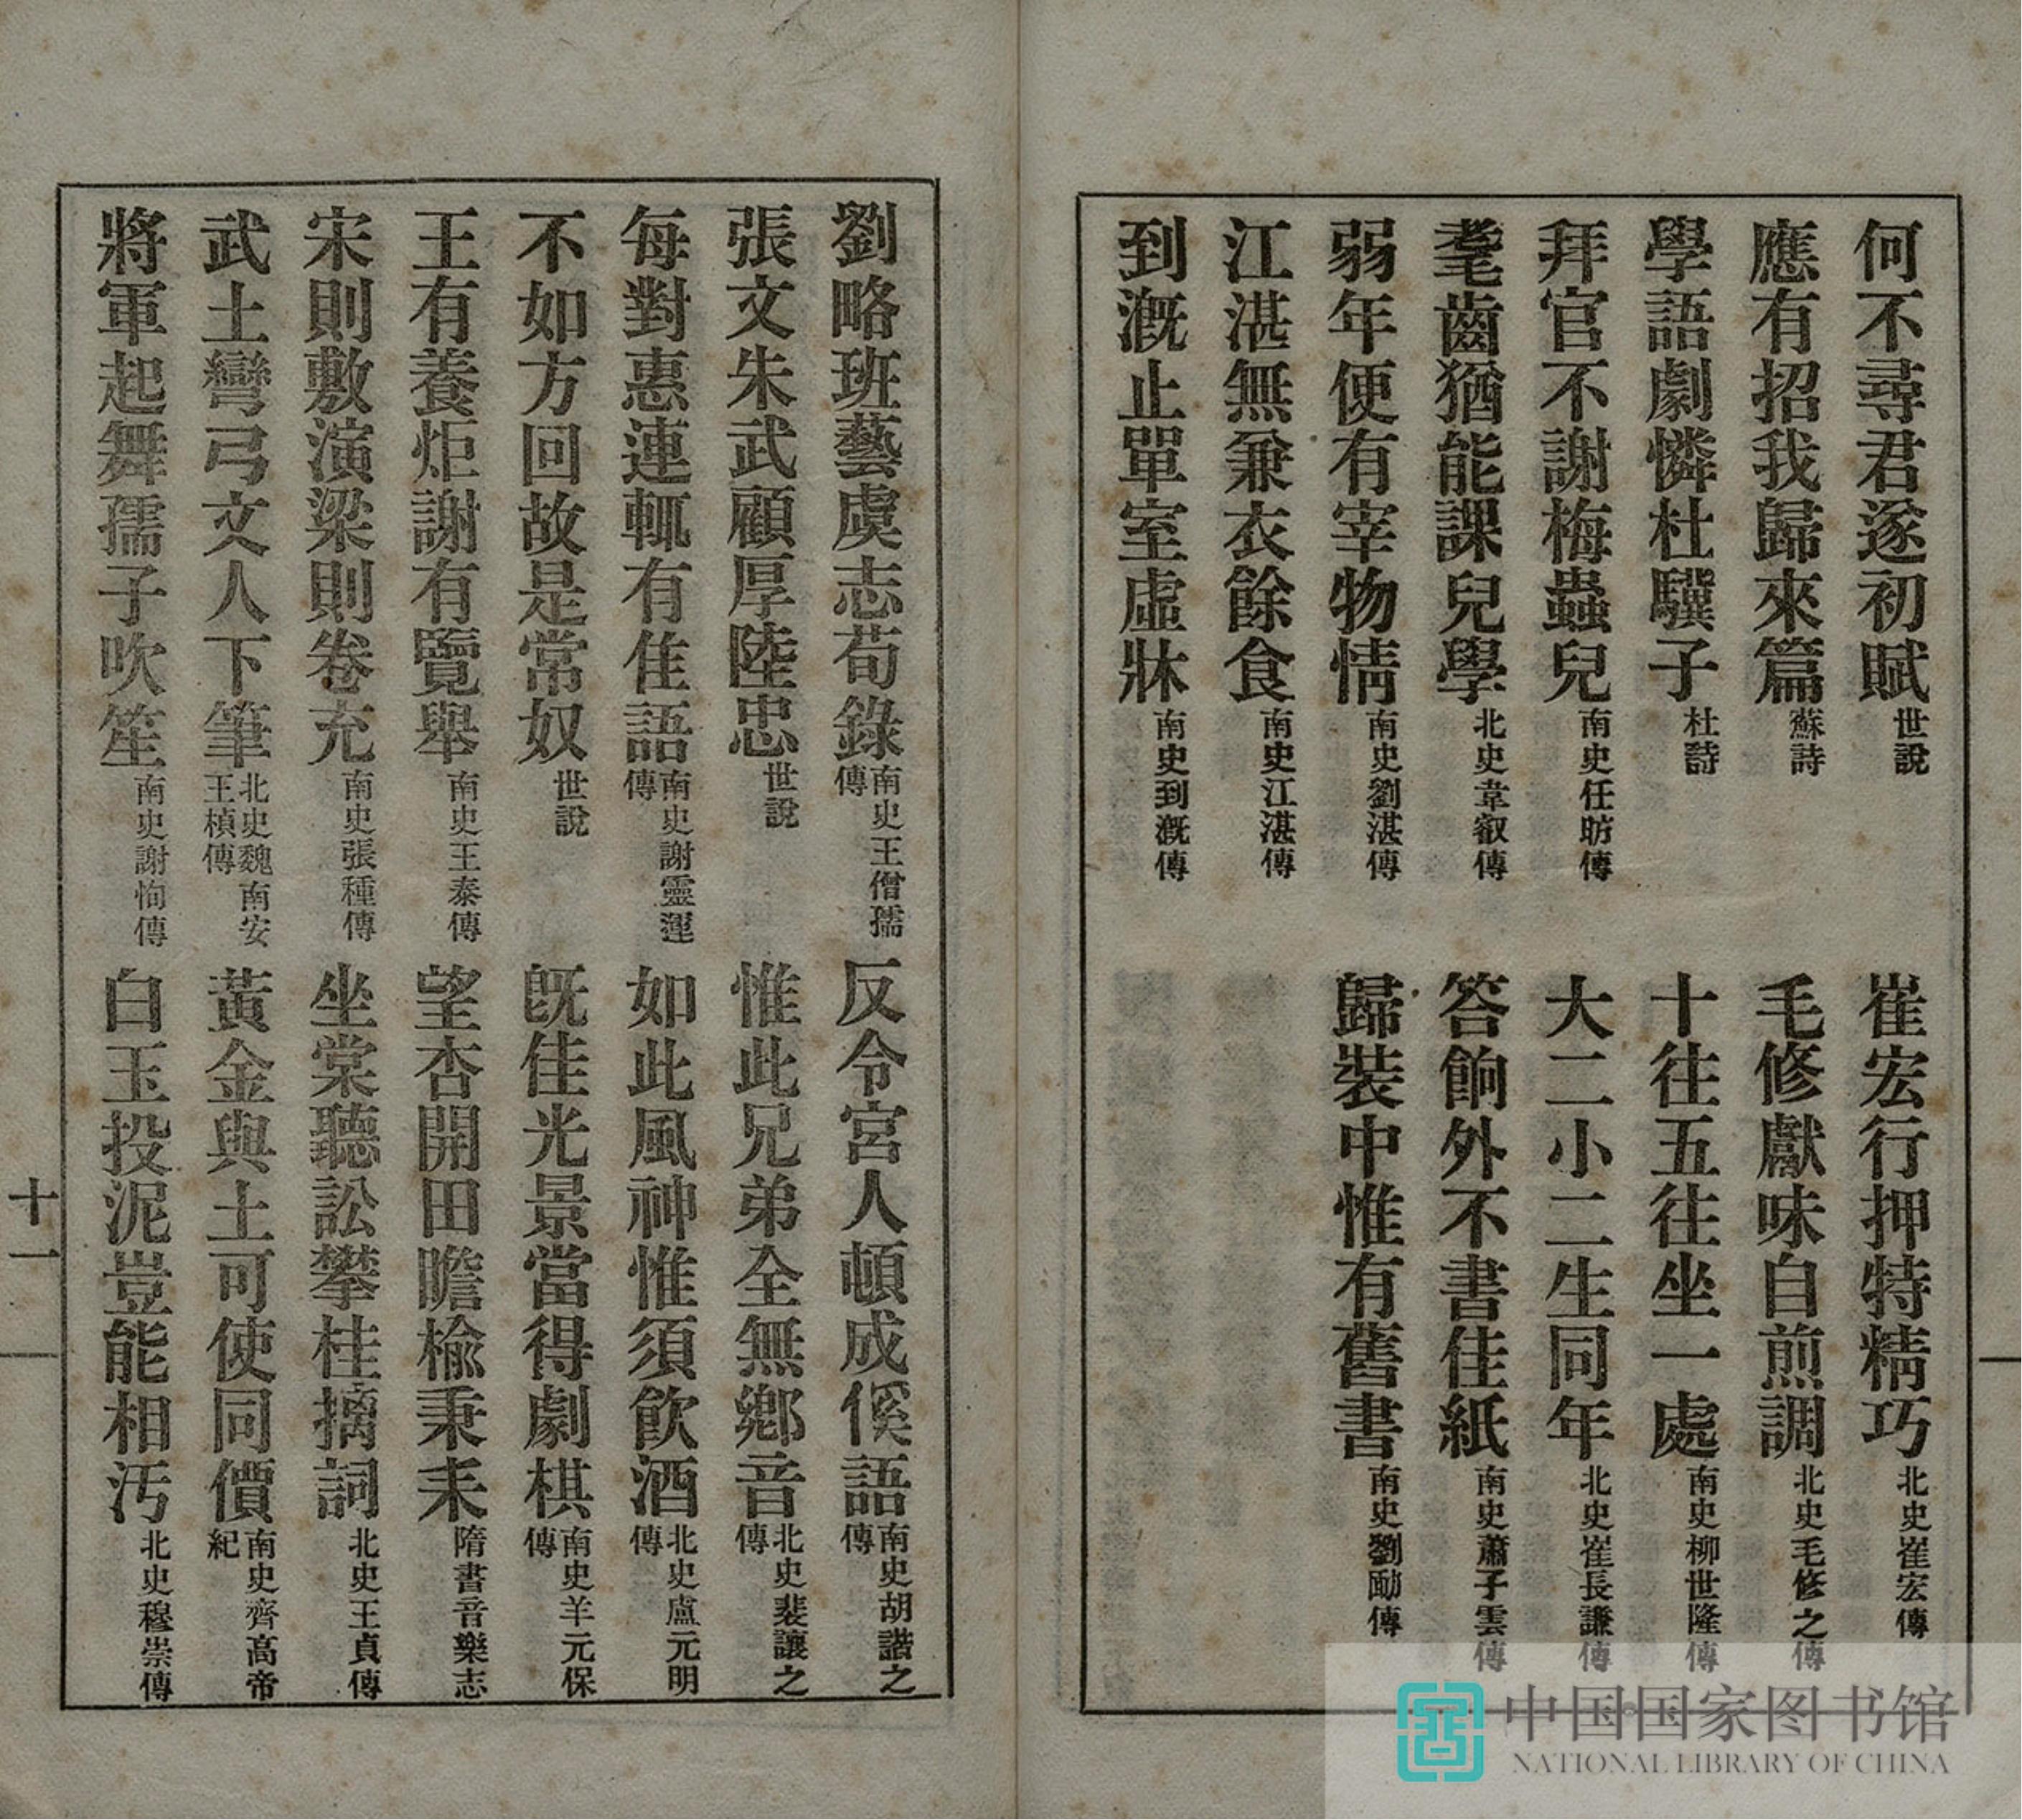 何不尋君遂初賦 世說 崔宏行押特精巧 北史崔宏傳
應有招我歸來篇 蘇詩 毛修獻味自煎調 北史毛修之傳
學語劇憐杜驥子 杜詩 十往五往坐一處 南史柳世隆傳
拜官不謝梅蟲兒 南史任昉傳 大二小二生同年 北史崔長謙傳
耄齒猶能課兒學 北史韋叡傳 答餉外不書佳紙 南史蕭子雲傳
弱年便有宰物情 南史劉湛傳 歸裝中惟有舊書 南史劉勔傳
江湛無兼衣餘食 南史江湛傳
到溉止單室虛牀 南史到溉傳
劉略班藝虞志荀錄 南史王僧孺傳 反令宮人頓成傒語 南史胡諧之傳
張文朱武顧厚陸忠 世說 惟此兄弟全無鄉音 北史裴讓之傳
每對惠連輒有佳語 南史謝靈運傳 如此風神惟須飲酒 北史盧元明傳
不如方回故是常奴 世說 旣佳光景當得劇棋 南史羊元保傳
王有養炬謝有覽舉 南史王泰傳 望杏開田瞻楡秉耒 隋書音樂志
宋則敷演梁則卷充 南史張種傳 坐棠聽訟攀桂摛詞 北史王貞傳
武士彎弓文人下筆 北史魏南安王楨傳 黃金與土可使同價 南史齊高帝紀
將軍起舞孺子吹笙 南史謝恂傳 白玉投泥豈能相汚 北史穆崇傳
十一
中国国家图书馆
NATIONAL LIBRARY OF CHINA